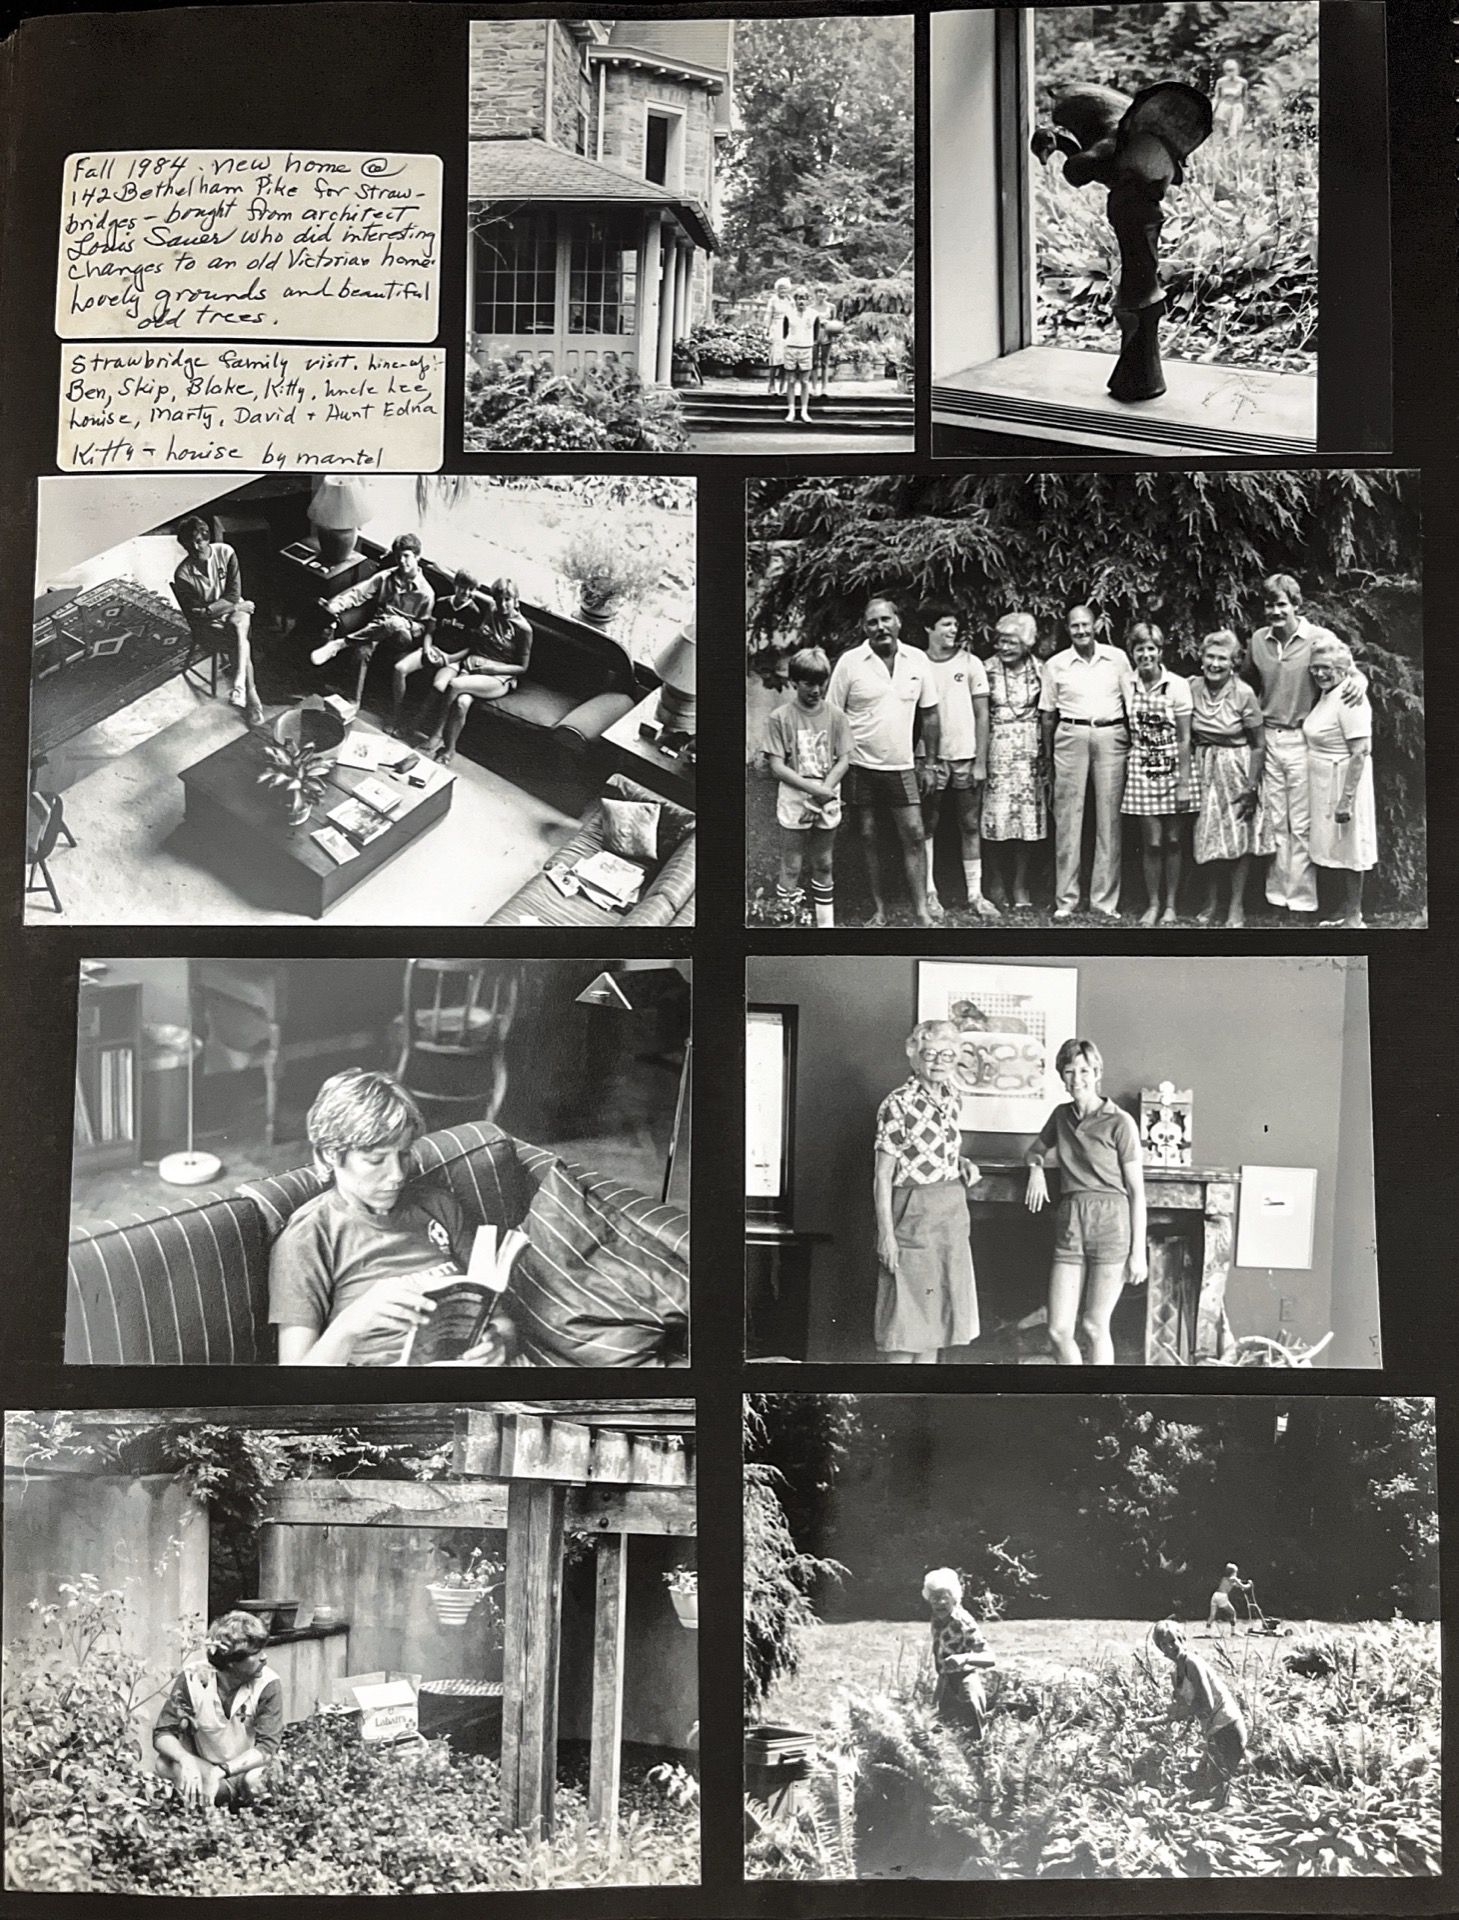 Fall 1984. new home @
142 Bethelham Pike for Straw-
bridges - bought from architect
Louis Sauer who did interesting
changes to an old Victorian home.
Lovely grounds and beautiful
old trees.
Strawbridge family visit. Line-up:
Ben, Skip, Blake, Kitty, Uncle Lee,
Louise, Marty, David + Aunt Edna
Kitty + Louise by mantel
Labatt's